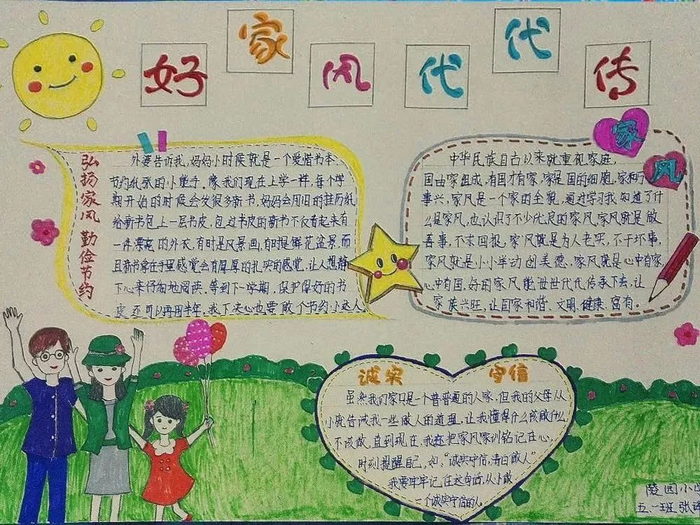 好家风代代传
弘扬家风 勤俭节约
外婆告诉我,妈妈小时候就是一个爱惜书本、
节约纸张的小孩子。像我们现在上学一样,每个学
期开始的时候会发很多新书,妈妈会用旧的挂历纸
给新书包上一层书皮,包过书皮的新书不仅看起来有
一件漂亮的外衣,有时是风景画,有时是鲜花盆景,而
且新书拿在手里感觉会有厚厚的扎实的感觉,让人想静
下心来仔细地阅读。等到下一学期,保护得好的书
皮还可以再用半年,我下决心也要做个节约小达人
家风
中华民族自古以来就重视家庭,
国由家组成,有国才有家,家是国的细胞,家和万
事兴,家风是一个家的全貌,通过学习我知道了什
么是家风,也认识了不少优良的家风,家风就是做
善事,不求回报,家风就是为人老实,不干坏事,
家风就是小小举动创美德,家风就是心中有家
心中有国,好的家风能世世代代传承下去,让
家族兴旺,让国家和谐、文明、健康、富有。
诚实 守信
虽然我们家只是一个普普通通的人家,但我的父母从
小就告诫我一些做人的道理,让我懂得什么该做什么
不该做,直到现在,我在把家风家训铭记在心,
时刻提醒自己,如:“诚实守信,清白做人”
我要牢牢记住这句话,从小做
一个诚实守信的人
陵园小
五一班 张